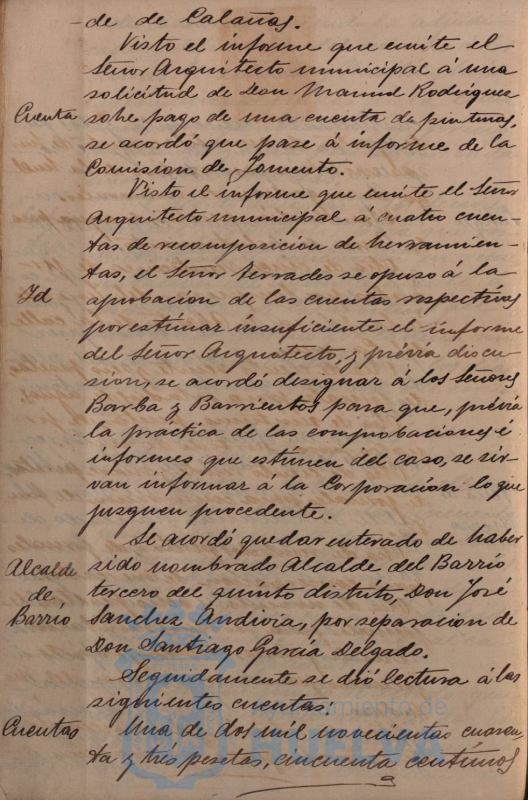 de de Calañas.
Visto el informe que emite el
Señor Arquitecto municipal á una
solicitud de Don Manuel Rodriguez
Cuenta sobre pago de una cuenta de pinturas,
se acordó que pase á informe de la
Comision de Fomento.
Visto el informe que emite el Señor
Arquitecto municipal á cuatro cuen-
tas de recomposicion de herramien-
tas, el Señor Terrades se opuso á la
Id aprobacion de las cuentas respectivas
por estimar insuficiente el informe
del Señor Arquitecto, y prévia discu-
sion, se acordó designar á los Señores
Barba y Barrientos para que, prévia
la práctica de las comprobaciones é
informes que estimen del caso, se sir-
van informar á la Corporacion lo que
juzguen procedente.
Se acordó quedar enterado de haber
Alcalde sido nombrado Alcalde del Barrio
de tercero del quinto distrito, Don José
Barrio Sanchez Andivia, por separacion de
Don Santiago García Delgado.
Seguidamente se dió lectura á las
siguientes cuentas:
Cuentas Una de dos mil novecientas cuaren-
ta y trés pesetas, cincuenta centimos
Ayuntamiento de
HUELVA